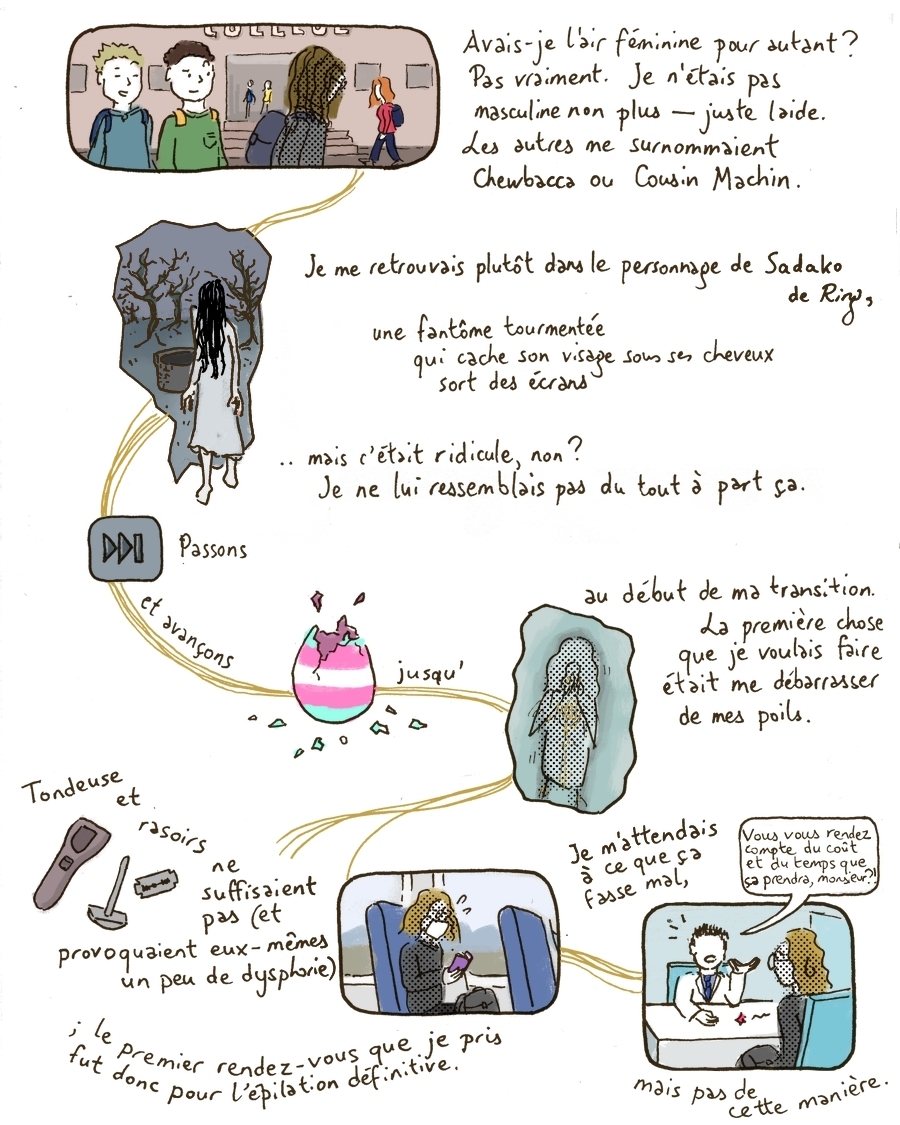 COLLEGE
Avais-je l'air féminine pour autant?
Pas vraiment. Je n'étais pas
masculine non plus — juste laide.
Les autres me surnommaient
Chewbacca ou Cousin Machin.
Je me retrouvais plutôt dans le personnage de Sadako
de Ring,
une fantôme tourmentée
qui cache son visage sous ses cheveux
sort des écrans
.. mais c'était ridicule, non?
Je ne lui ressemblais pas du tout à part ça.
Passons
et avançons
jusqu'
au début de ma transition.
La première chose
que je voulais faire
était me débarrasser
de mes poils.
Tondeuse
et
rasoirs
ne
suffisaient
pas (et
provoquaient eux-mêmes
un peu de dysphorie)
; le premier rendez-vous que je pris
fut donc pour l'épilation définitive.
Je m'attendais
à ce que ça
fasse mal,
Vous vous rendez
compte du coût
et du temps que
ça prendra, monsieur?!
mais pas de
cette manière.